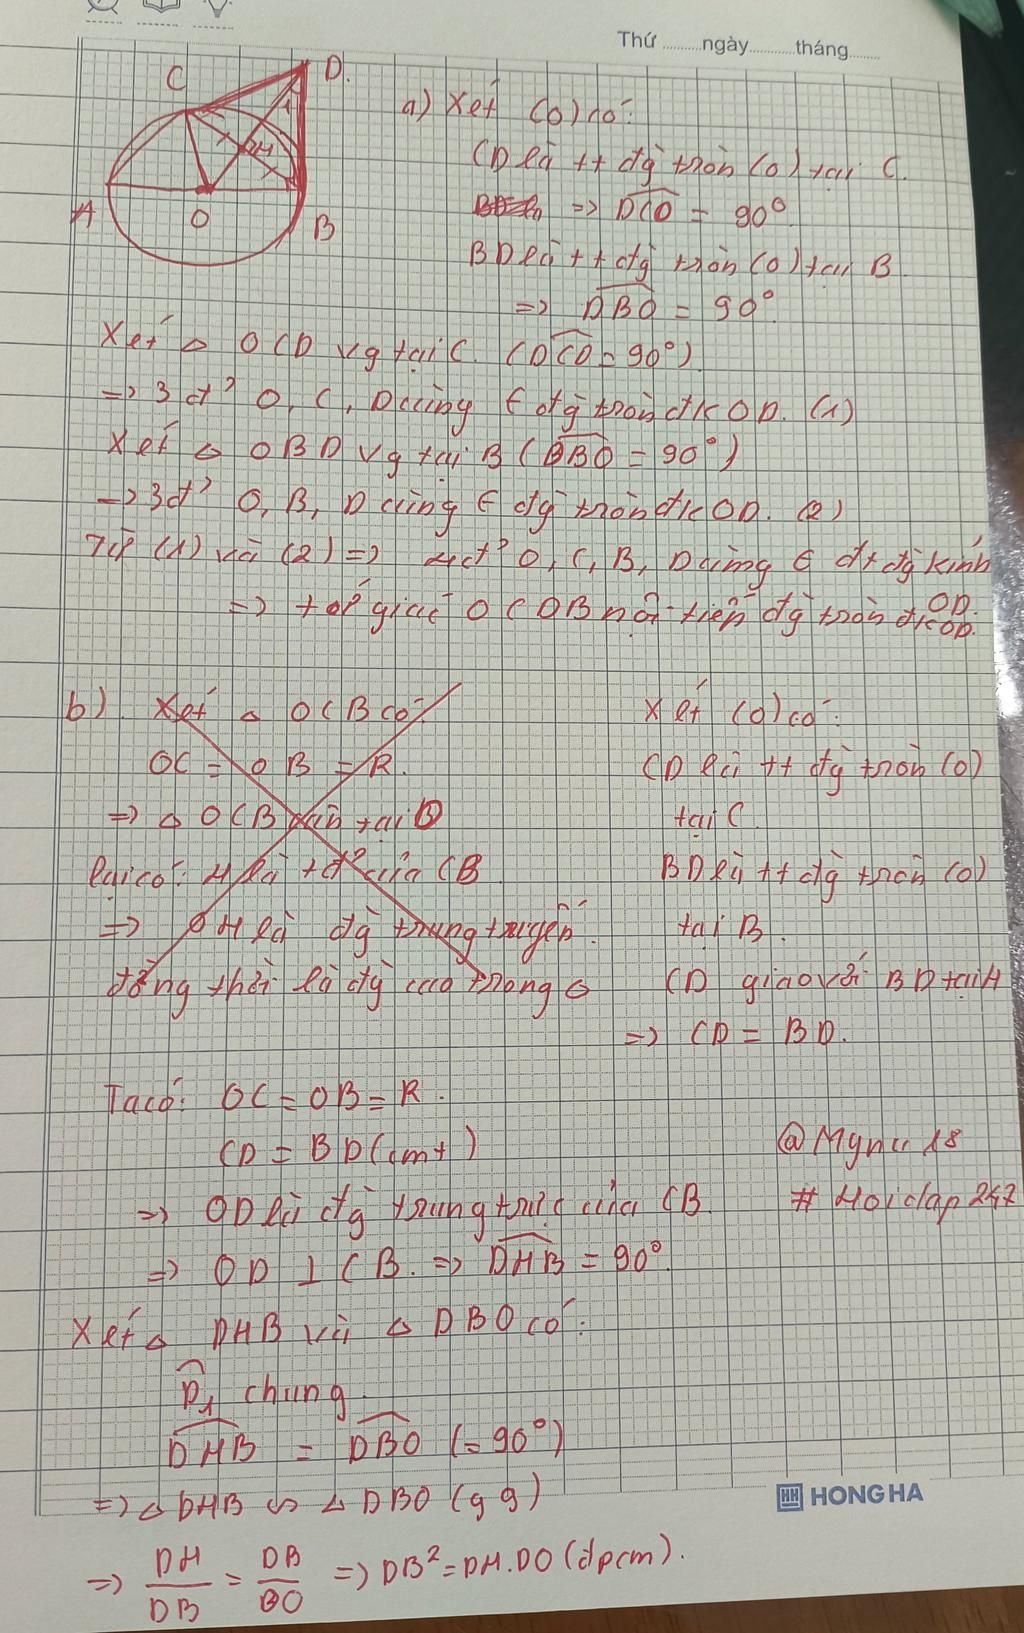 Thứ ......... ngày ......... tháng .........
C
D.
1
H
A
O
B
a) Xét (O) có:
CD là tt đg tròn (O) tại C.
=> DCO = 90°
BD là tt đg tròn (O) tại B
=> DBO = 90°
Xét △ OCD vg tại C. (DCO = 90°)
=> 3 đ' O, C, D cùng ∈ đg tròn đk OD. (1)
Xét △ OBD vg tại B (DBO = 90°)
=> 3đ' O, B, D cùng ∈ đg tròn đk OD. (2)
Từ (1) và (2) => 4đ' O, C, B, D cùng ∈ đt đg kính
OD.
=> tứ giác OCDB nội tiếp đg tròn đk OD.
b) Xét △ OCB có:
OC = OB = R.
=> △ OCB cân tại O
Lại có: H là tđ' của CB
=> OH là đg trung tuyến
đồng thời là đg cao trong △
Xét (O) có:
CD là tt đg tròn (O)
tại C.
BD là tt đg tròn (O)
tại B.
CD giao với BD tại H
=> CD = BD.
Ta có: OC = OB = R.
CD = BD (cmt)
=> OD là đg trung trực của CB
=> OD ⊥ CB. => DHB = 90°
@Mynu18
# Hoidap247
Xét △ DHB và △ DBO có:
D1 chung
DHB = DBO (= 90°)
=> △ DHB ∽ △ DBO (gg)
=> DH/DB = DB/BO => DB² = DH.DO (đpcm).
HH HONG HA